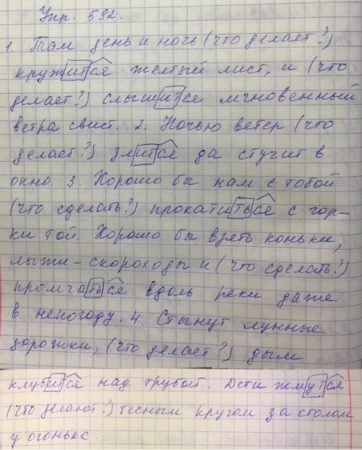 Упр. 532.
1. Там день и ночь (что делает?)
кружится желтый лист, и (что
делает?) слышится мгновенный
ветра свист. 2. Ночью ветер (что
делает?) злится да стучит в
окно. 3. Хорошо бы нам с тобой
(что сделать?) прокатиться с гор-
ки той. Хорошо бы взять коньки,
лыжи-скороходы и (что сделать?)
промчаться вдоль реки даже
в непогоду. 4. Стынут лунные
дорожки, (что делает?) дым
клубится над трубой. Дети жмутся
(что делают?) тесным кругом за столом
у огонька.